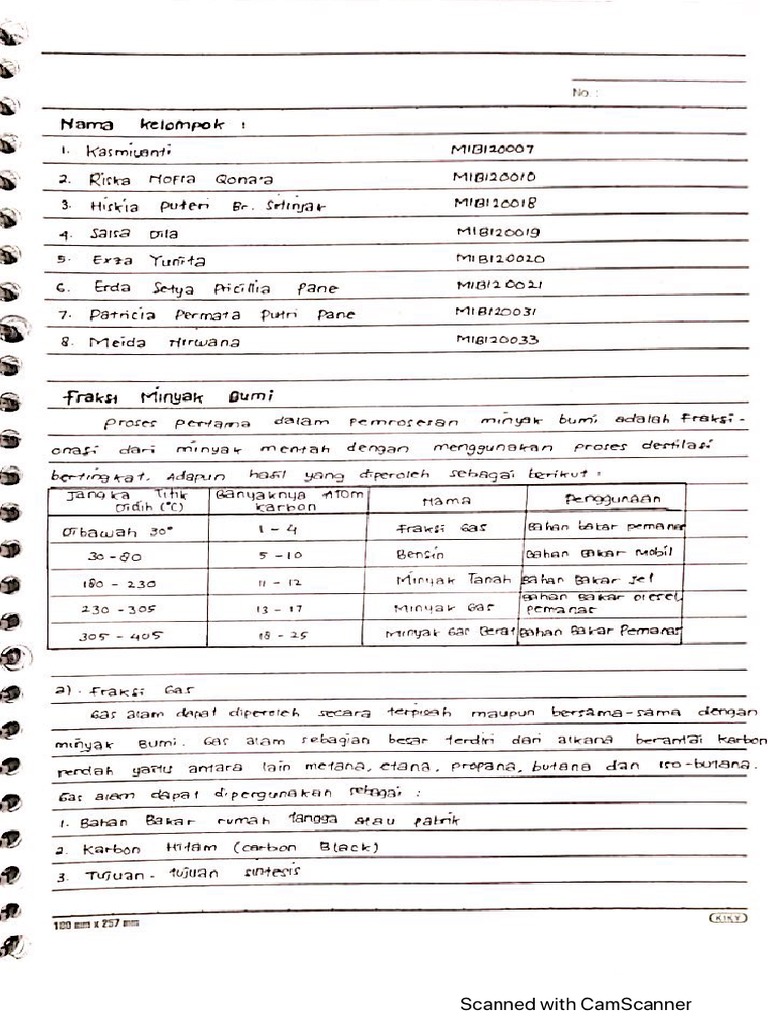 No. :
Nama Kelompok :
1. Kasmiyanti M1B120007
2. Riska Nofra Qonara M1B120010
3. Hiskia Puteri Br. Sitinjak M1B120018
4. Salsa Dila M1B120019
5. Exza Yunita M1B120020
6. Erda Setya Pricillia Pane M1B120021
7. Patricia Permata Putri Pane M1B120031
8. Meida Nirwana M1B120033
Fraksi Minyak Bumi
Proses pertama dalam pemrosesan minyak bumi adalah Fraksi-
onasi dari minyak mentah dengan menggunakan proses destilasi
bertingkat. Adapun hasil yang diperoleh sebagai berikut :
Jangka Titik Didih (°C) Banyaknya Atom Karbon Nama Penggunaan
Dibawah 30° 1 - 4 Fraksi Gas Bahan bakar pemanas
30 - 80 5 - 10 Bensin Bahan Bakar Mobil
180 - 230 11 - 12 Minyak Tanah Bahan Bakar Jet
230 - 305 13 - 17 Minyak Gas Bahan Bakar Diesel, pemanas
305 - 405 18 - 25 Minyak Gas Berat Bahan Bakar Pemanas
a). Fraksi Gas
Gas alam dapat diperoleh secara terpisah maupun bersama-sama dengan
minyak Bumi. Gas alam sebagian besar terdiri dari alkana berantai karbon
rendah yaitu antara lain metana, etana, propana, butana dan iso-butana.
Gas alam dapat dipergunakan sebagai :
1. Bahan Bakar rumah tangga atau pabrik
2. Karbon Hitam (carbon Black)
3. Tujuan - tujuan sintesis
180 mm x 257 mm KIKY
Scanned with CamScanner